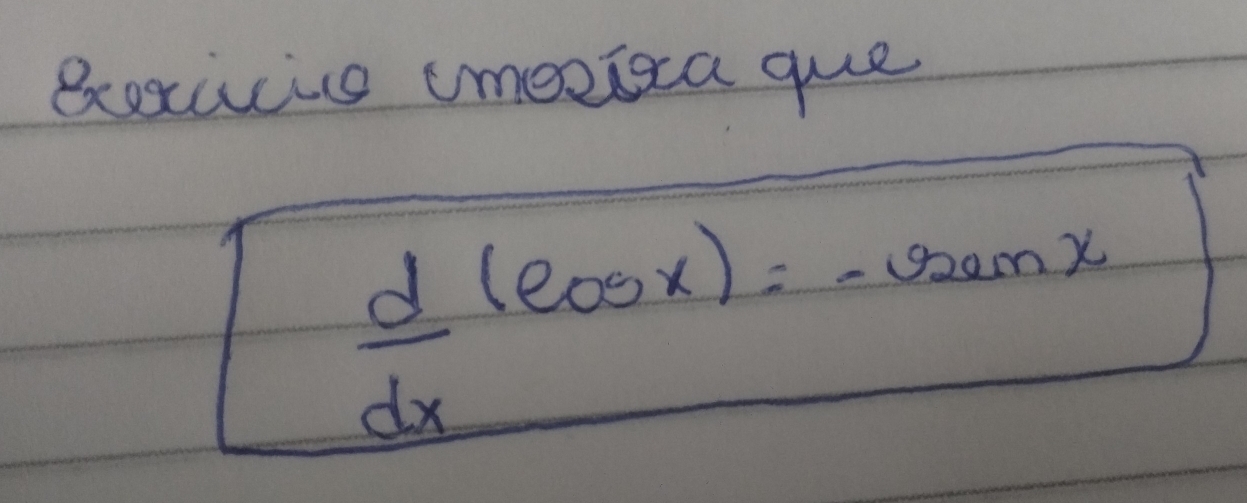 Exercicio mostra que
d (cos x) = - sen x
dx